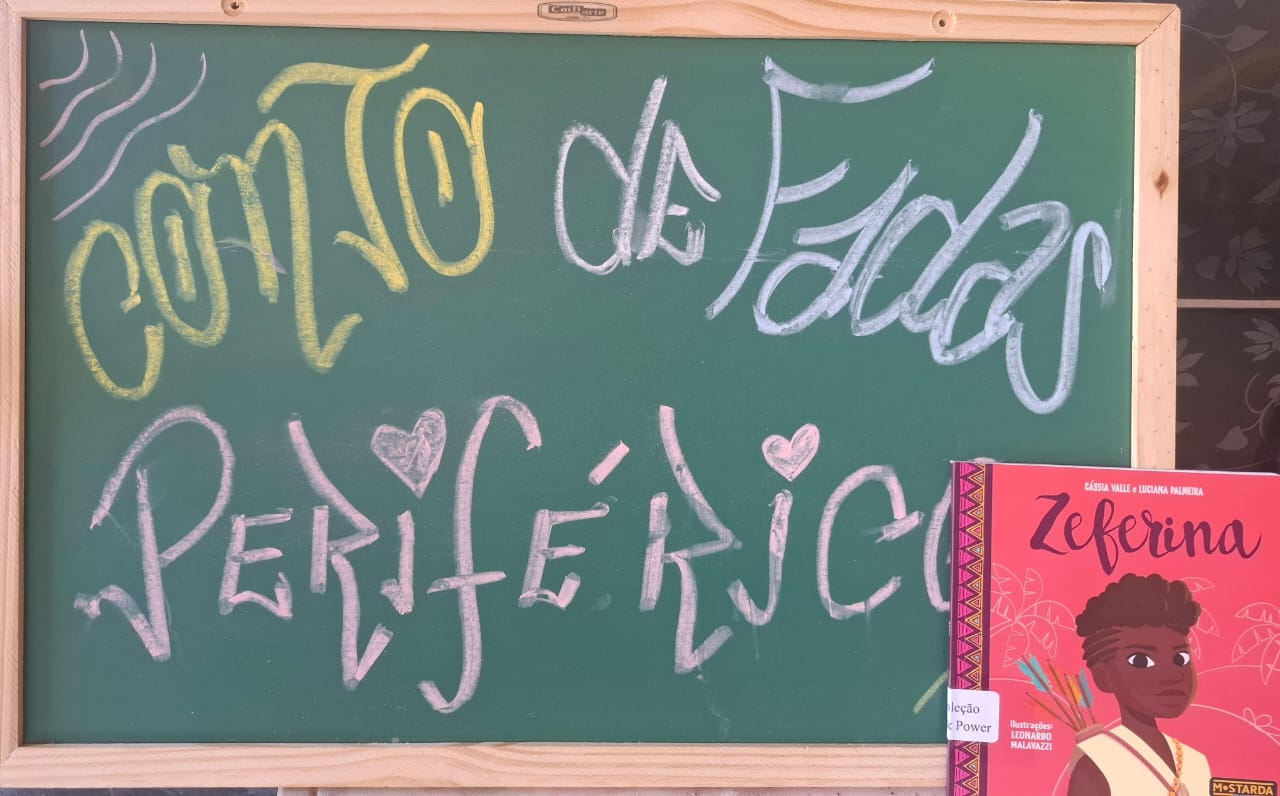 CONTO de Fadas
PERIFÉRICO
CÁSSIA VALLE e LUCIANA PALMEIRA
Zeferina
leção
Power
Ilustrações:
LEONARDO
MALAVAZZI
MOSTARDA